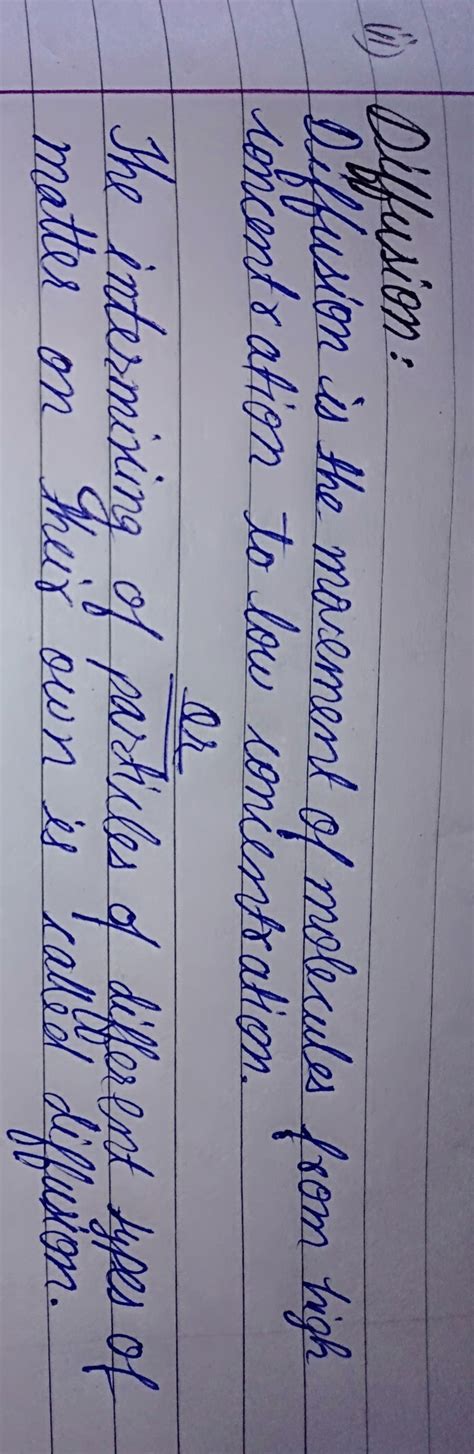 ii) Diffusion:
Diffusion is the movement of molecules from high
concentration to low concentration.
Or
The intermixing of particles of different types of
matter on their own is called diffusion.